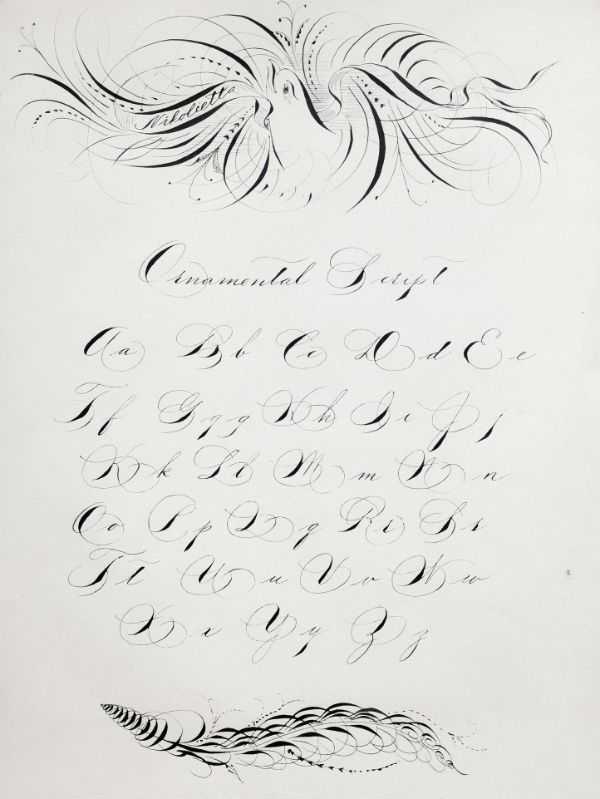 Nikoletta
Ornamental Script
Aa Bb Cc Dd Ee
Ff Ggg Hh Ii Jj
Kk Ll Mm Nn
Oo Pp Qq Rr Ss
Tt Uu Vv Ww
Xx Yy Zz